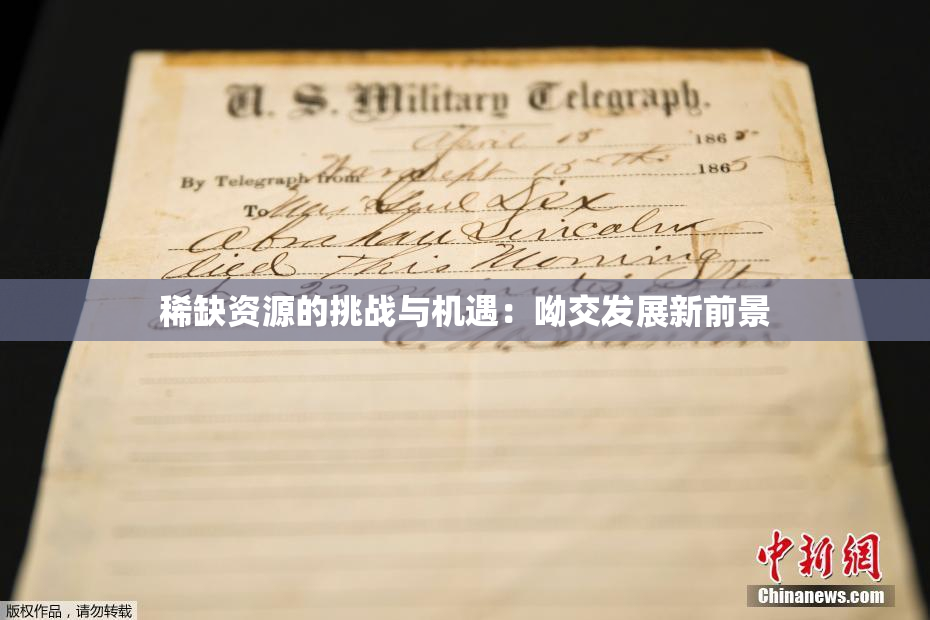 U. S. Military Telegraph.
April 15 1865-
By Telegraph from Wash Sept 15th 1865
To Maj Genl Dix
Abraham Lincoln
died This Morning
at 22 minutes after
稀缺资源的挑战与机遇：呦交发展新前景
中新網
Chinanews.com
版权作品，请勿转载